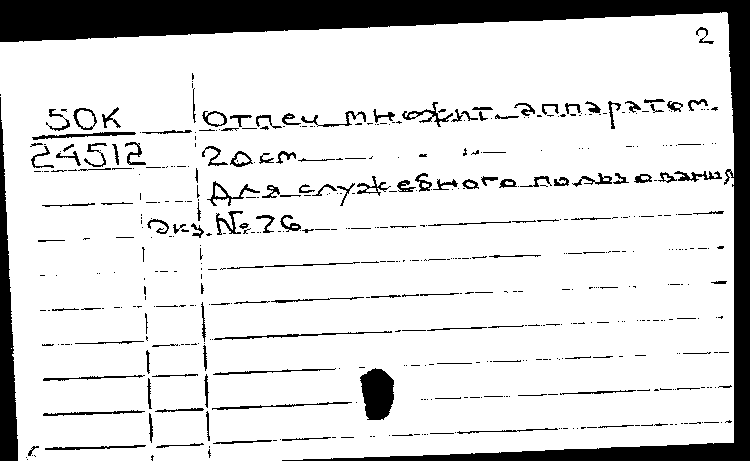 2
50К Отпеч. множит. аппаратом.
24512 20 см.
Для служебного пользования
Экз. № 26.